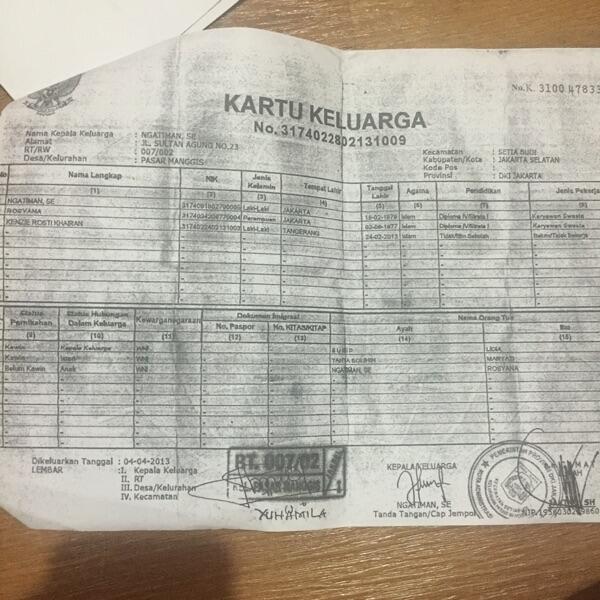 No.K. 3100 47833
KARTU KELUARGA
No. 3174022802131009
Nama Kepala Keluarga : NGATIMAN, SE
Alamat : JL. SULTAN AGUNG NO.23
RT/RW : 007/002
Desa/Kelurahan : PASAR MANGGIS
Kecamatan : SETIA BUDI
Kabupaten/Kota : JAKARTA SELATAN
Kode Pos :
Provinsi : DKI JAKARTA
No Nama Lengkap NIK Jenis Kelamin Tempat Lahir Tanggal Lahir Agama Pendidikan Jenis Pekerja
(1) (2) (3) (4) (5) (6) (7) (8)
NGATIMAN, SE Laki-Laki JAKARTA 18-02-1979 Islam Diploma IV/Strata I Karyawan Swasta
ROSYANA Perempuan JAKARTA Islam Diploma IV/Strata I Karyawan Swasta
KENZIE ROSTI KHAIRAN Laki-Laki TANGERANG 24-02-2013 Islam Tidak/Blm Sekolah Belum/Tidak Bekerja
Status Pernikahan Status Hubungan Dalam Keluarga Kewarganegaraan Dokumen Imigrasi Nama Orang Tua
No. Paspor No. KITAS/KITAP Ayah Ibu
(9) (10) (11) (12) (13) (14) (15)
Kawin Kepala Keluarga WNI
Kawin Isteri WNI MARYATI
Belum Kawin Anak WNI NGATIMAN, SE ROSYANA
Dikeluarkan Tanggal : 04-04-2013
LEMBAR : I. Kepala Keluarga
II. RT
III. Desa/Kelurahan
IV. Kecamatan
RT. 007/02
KEL. PASAR MANGGIS
KEPALA KELUARGA
NGATIMAN, SE
Tanda Tangan/Cap Jempol
PEMERINTAH PROVINSI DKI
SH